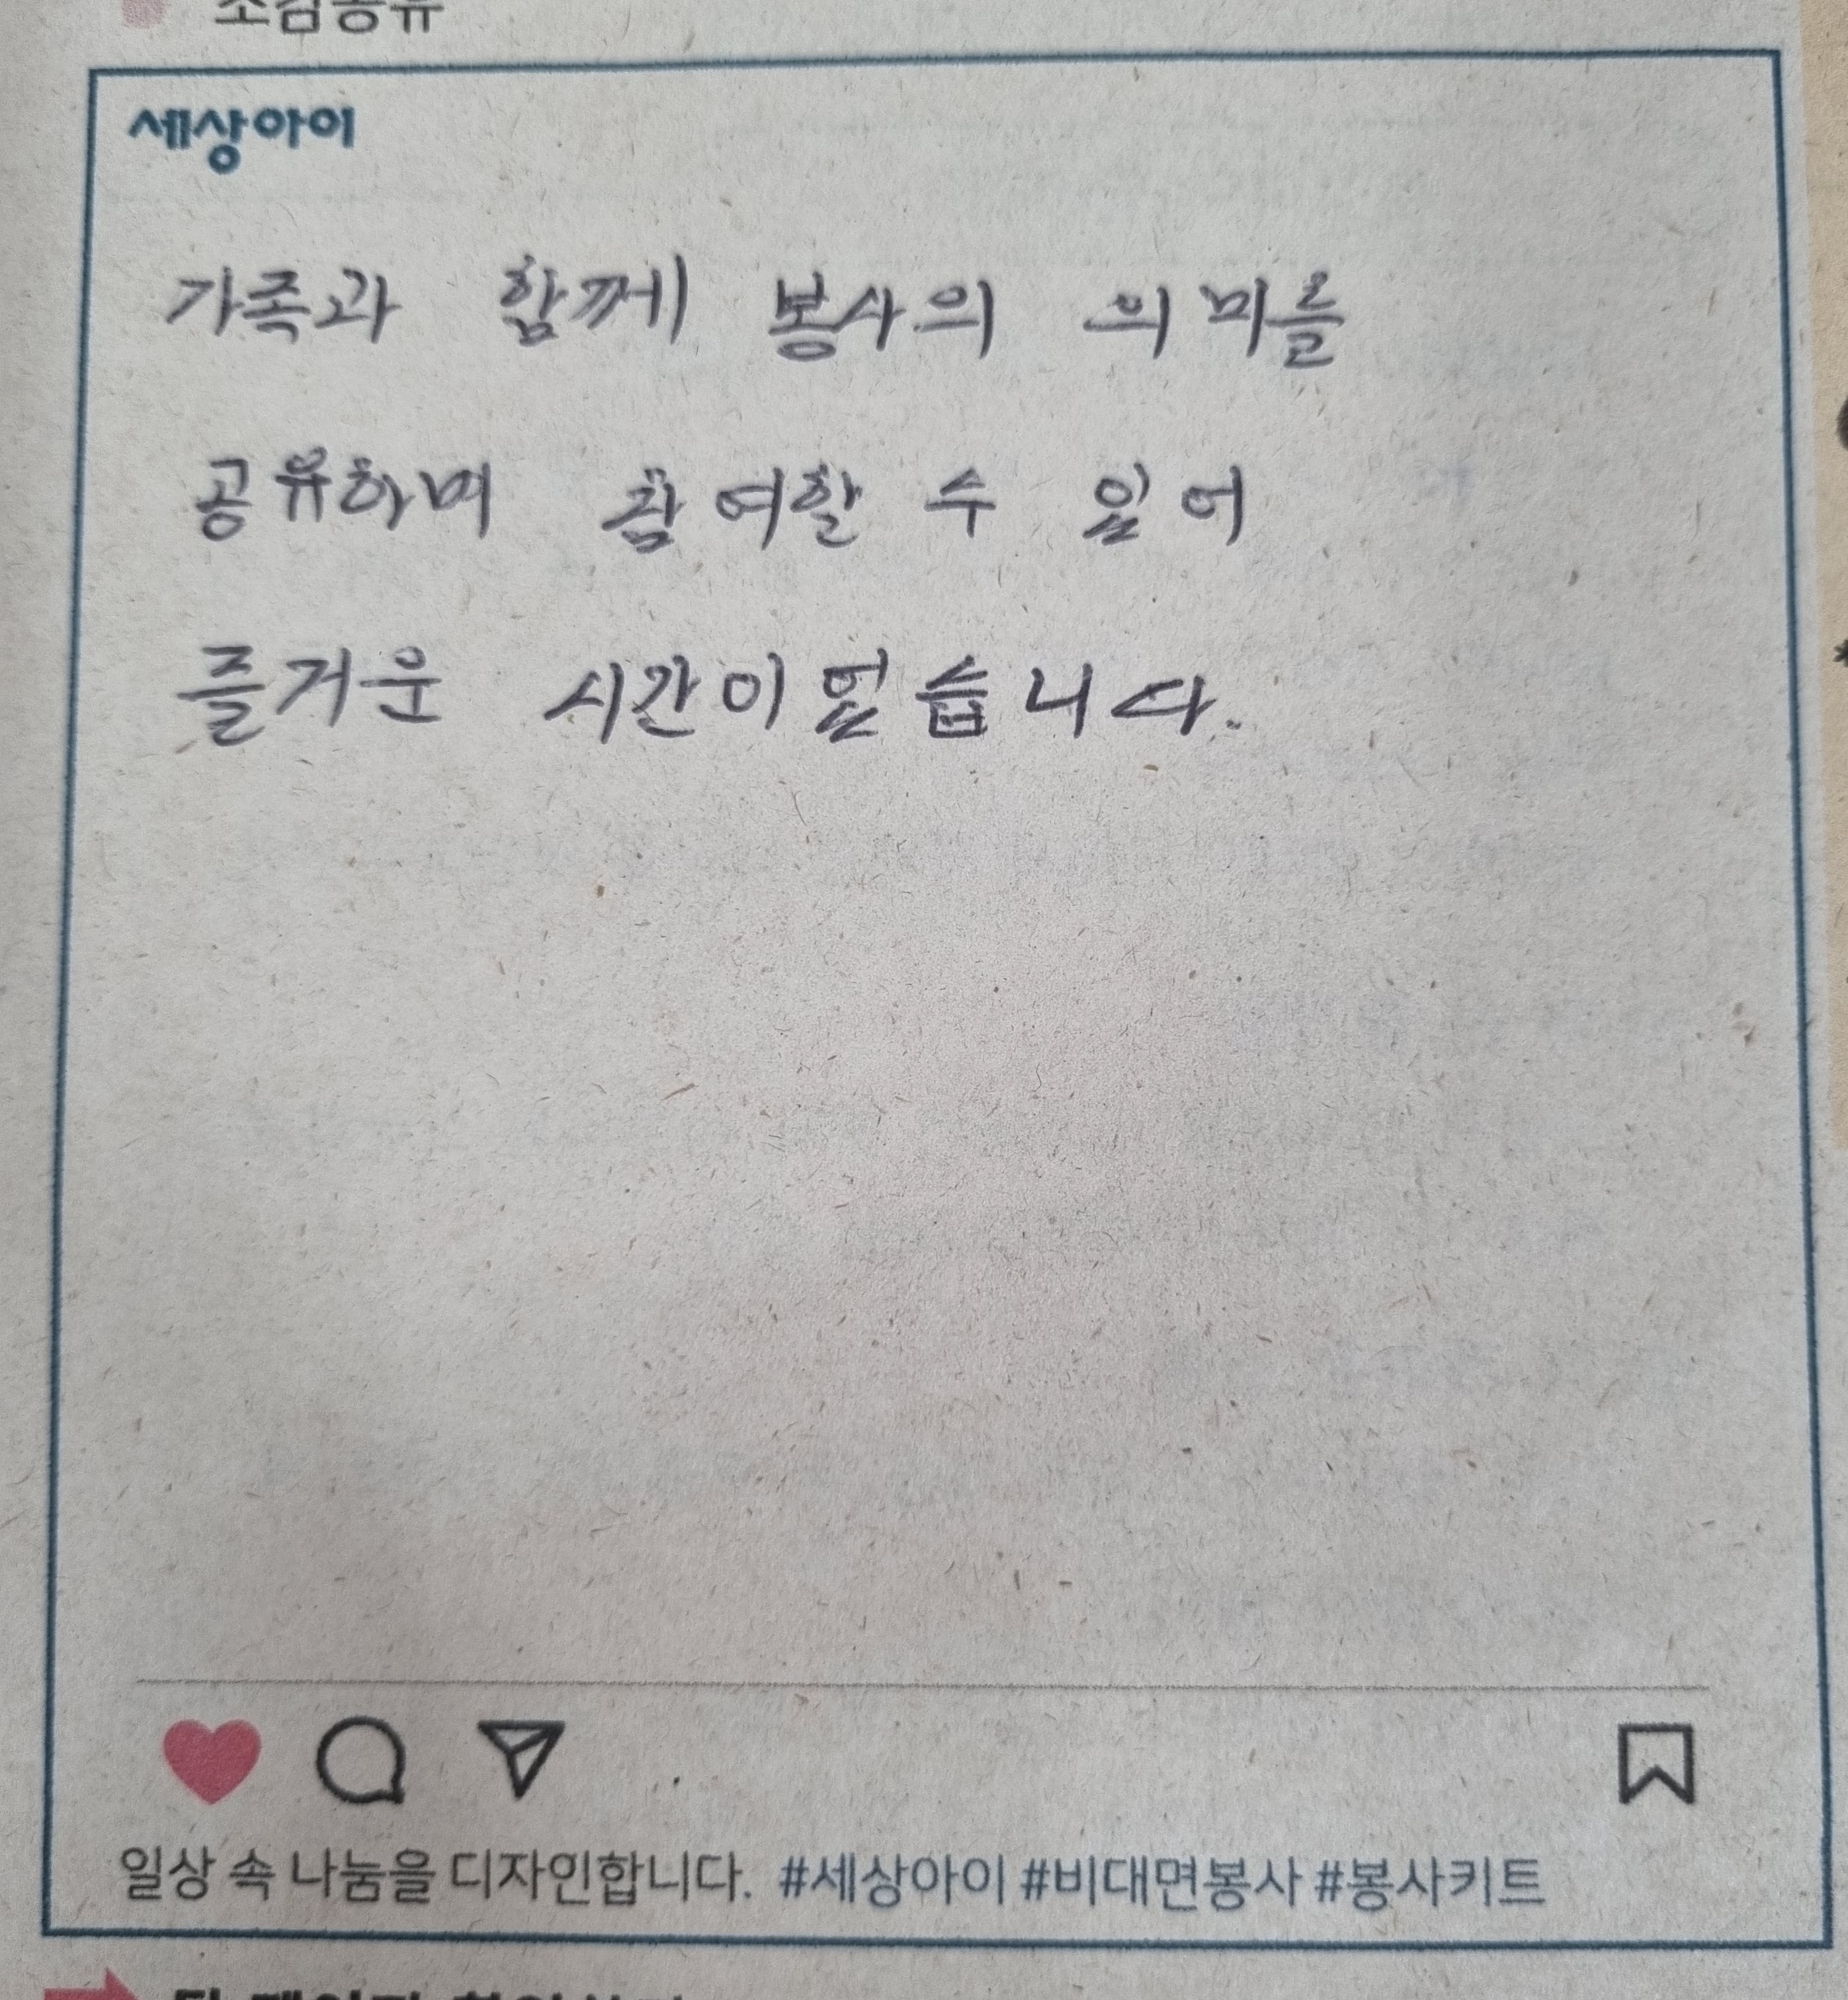 소감공유
세상아이
가족과 함께 봉사의 의미를
공유하며 참여할 수 있어
즐거운 시간이었습니다.
일상 속 나눔을 디자인합니다. #세상아이 #비대면봉사 #봉사키트